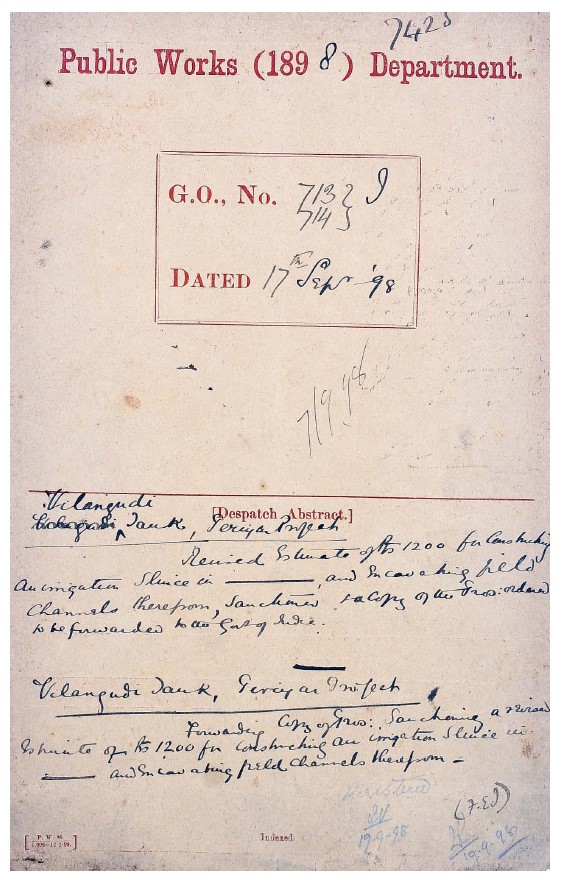 7423
Public Works (1898) Department.
G.O., No. 713 } I
714 }
DATED 17th Sepr '98
7/9/98
[Despatch Abstract.]
Vilangudi
Tank, Periyar Project
Revised Estimate of Rs 1200 for Constructing
an irrigation Sluice in ———, and Excavating field
Channels therefrom, Sanctioned & a Copy of the Pros: ordered
to be forwarded to the Govt of India.
Vilangudi Tank, Periyar Project
Forwarding Copy of Pros: Sanctioning a revised
Estimate of Rs 1200 for constructing an irrigation Sluice in
——— and Excavating field channels therefrom –
Registered
19-9-98
19-9-98
[P. W.
Indexed.